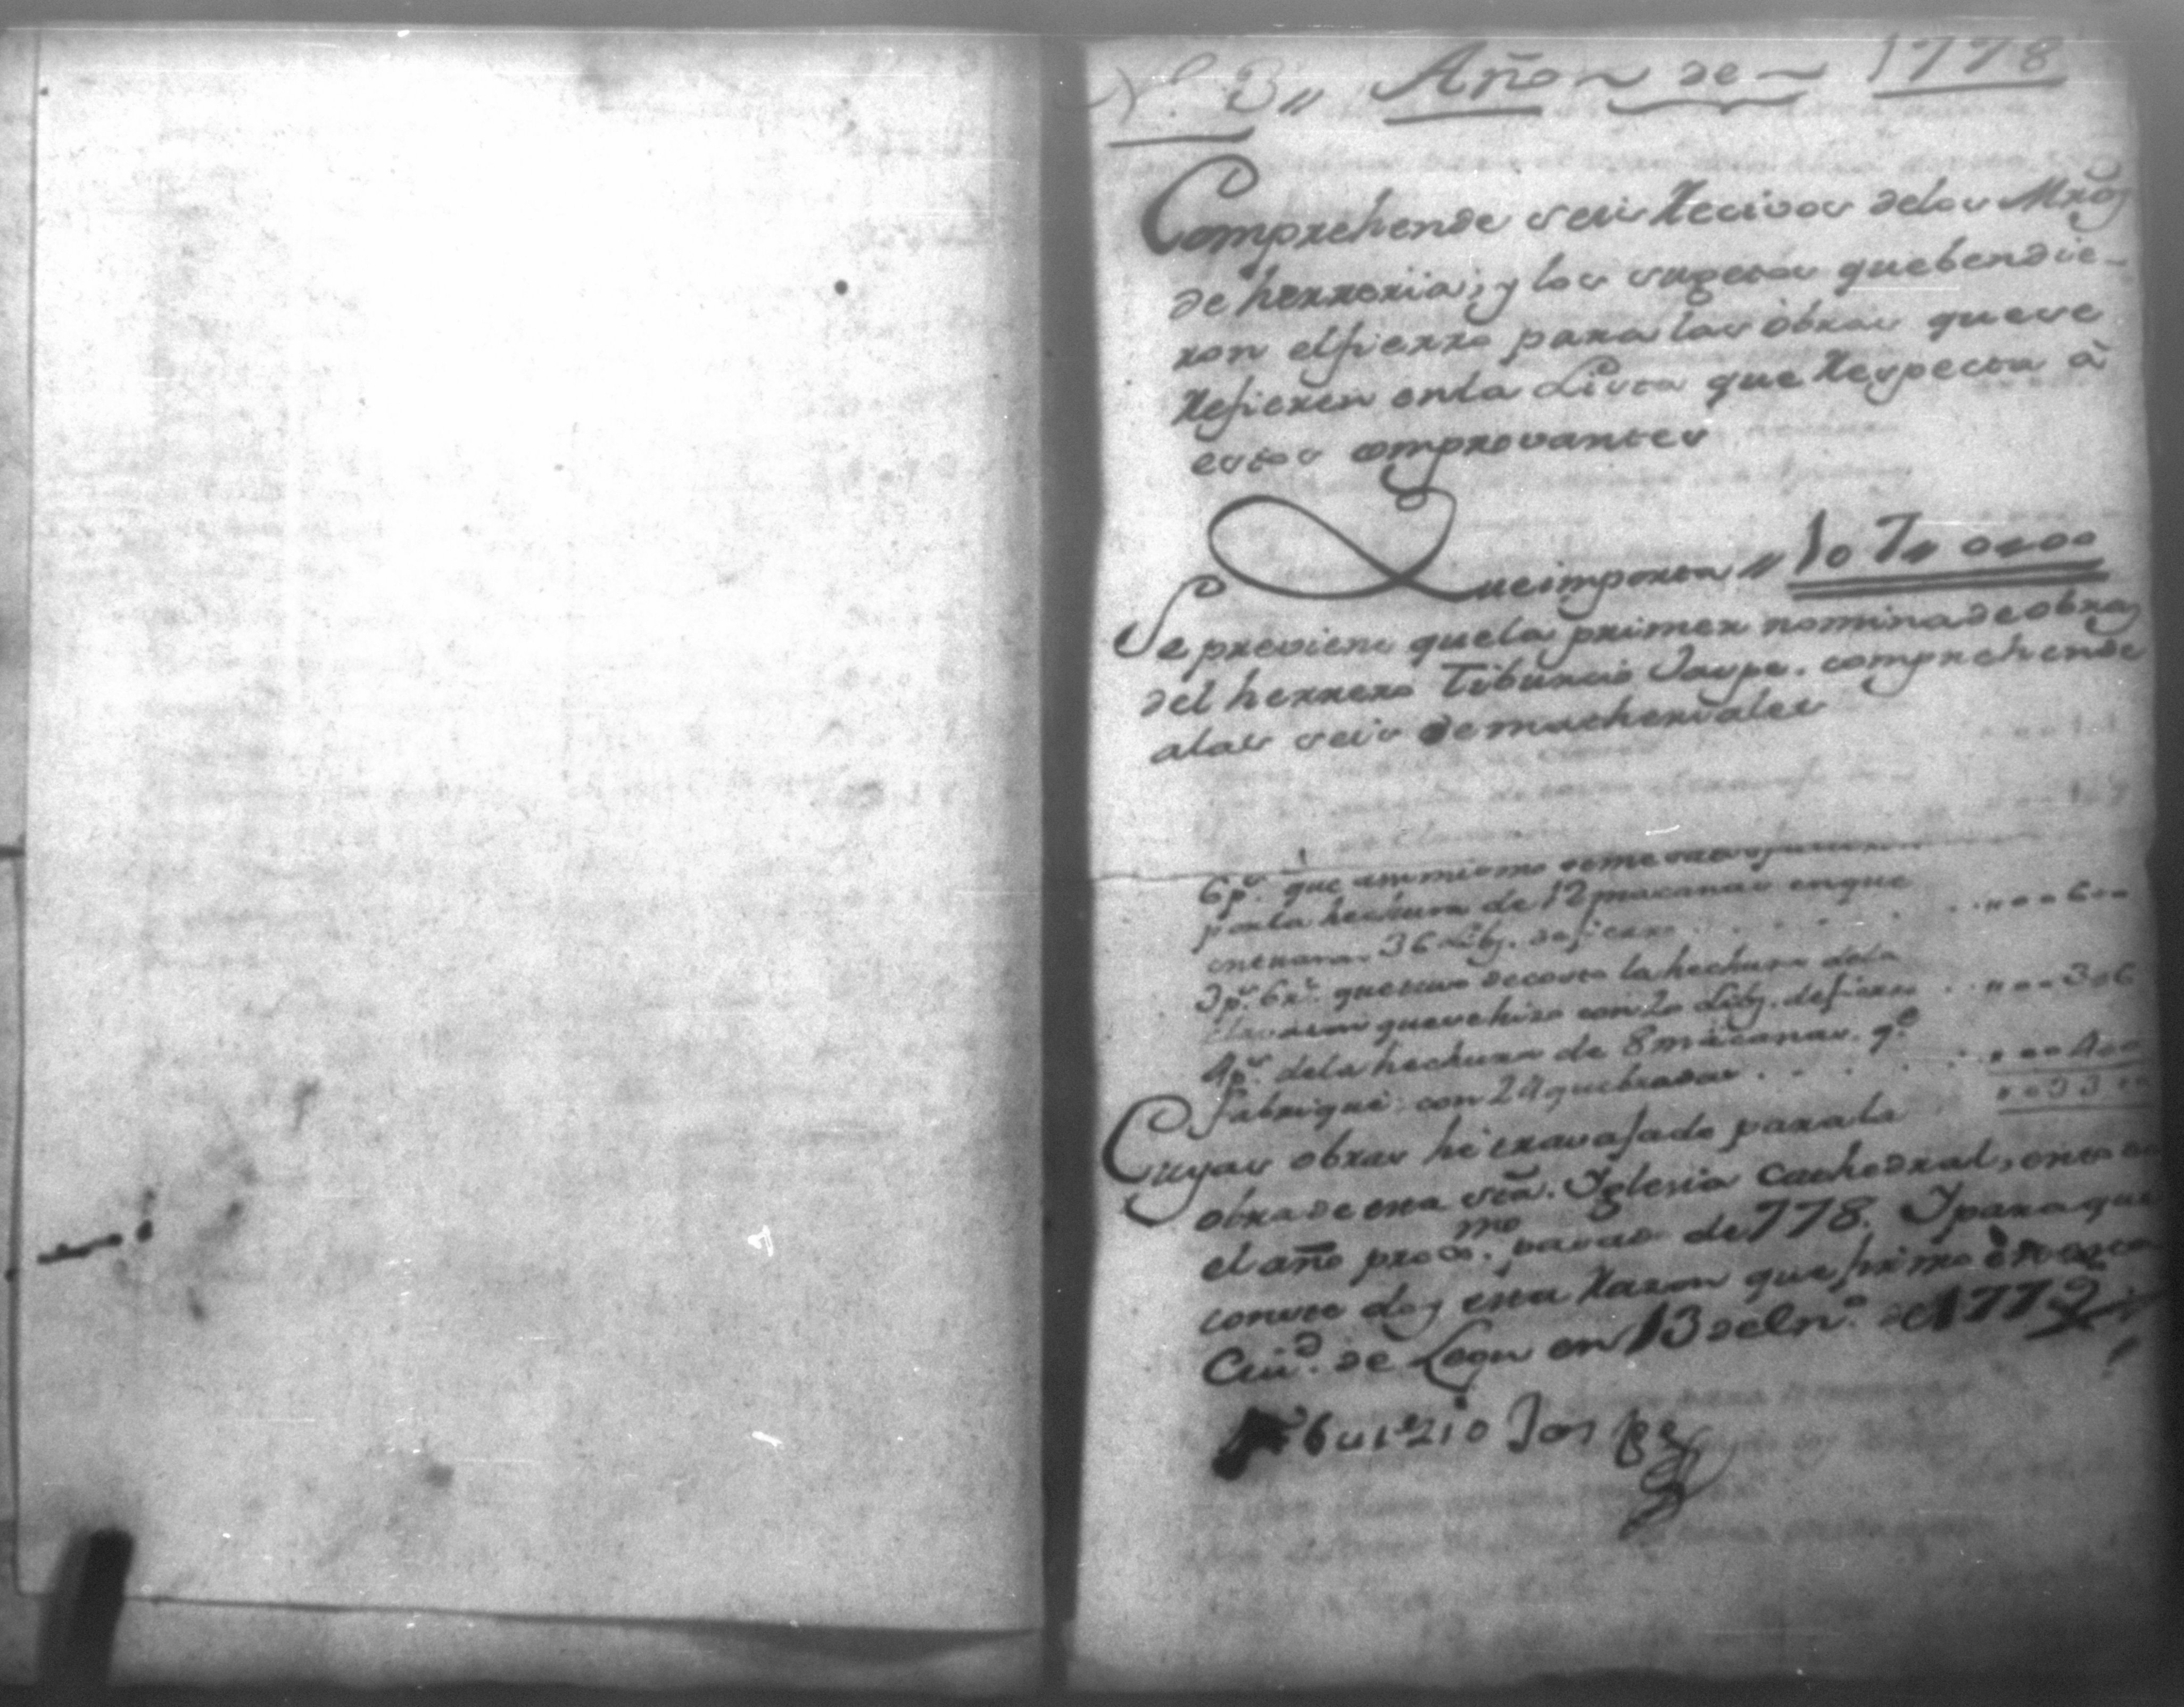 N.º 3,, Año de 1778
Comprehende seis Recivos delos Mrõs
de herreria; y los sugetos quebendie-
ron elfierro para las obras quese
Refieren enla Lista que Respecta à
estos comprovantes
Queimporta ,, 107,, 0,,00
Se previene quela primer nomina de obras
del herrero Tiburcio Jaspe. comprehende
alas seis de matheriales
6 p.s que asimismo seme
porla hechura de 12 macanas enque
entraron 36 Lib.s defierro . . . 6
3 p.s 6 r.s que tuvo decosto la hechura dela
quese hizo con 20 Lib.s defierro . . . 3,,6
4 p.s dela hechura de 8 macanas. q.e
fabriqué con 24 quebradas . . . 4
Cuyas obras hé travajado parala
obra de esta Stã. Iglesia Cathedral, en
el año prox.mo pasado de 778. Y para que
conste doy esta Razon que firmo èn esta
Ciu.d de Leon en 13 de En.º de 1779
Tiburzio Jaspe